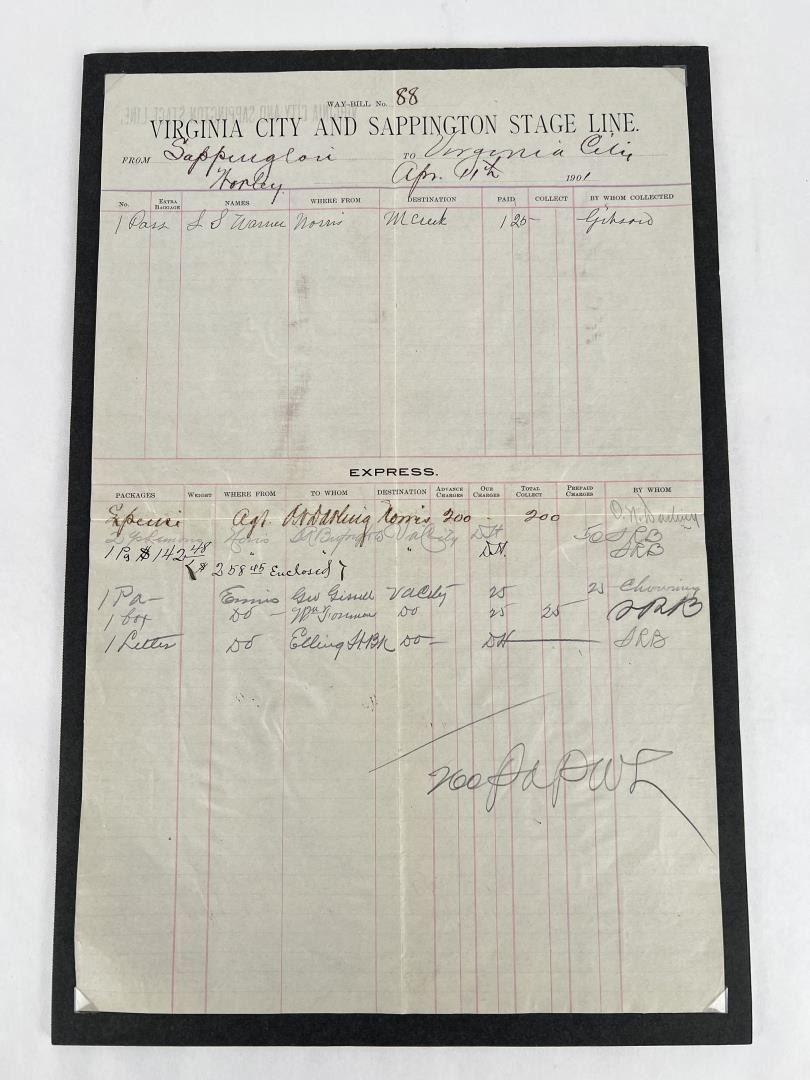 WAY-BILL No. 88
VIRGINIA CITY AND SAPPINGTON STAGE LINE.
FROM Sappington TO Virginia City
Worley Apr. 11th 1901
No. EXTRA BAGGAGE NAMES WHERE FROM DESTINATION PAID COLLECT BY WHOM COLLECTED
1 Pass S S Warner Norris M Creek 1 25 Gibson
EXPRESS.
PACKAGES WEIGHT WHERE FROM TO WHOM DESTINATION ADVANCE CHARGES OUR CHARGES TOTAL COLLECT PREPAID CHARGES BY WHOM
Expense Agt. Darling Norris 200 200
DH 50 SRB
1 Pa $ 142 48 " " " DH. SRB
($ 258 45 Enclosed)
1 Pa- Ennis Geo Gissell Va City 25 25 Chowning
1 box DO - Wm DO 25 25 SRB
1 Letter DO Elling H BK DO - DH SRB
200 Pd PWL